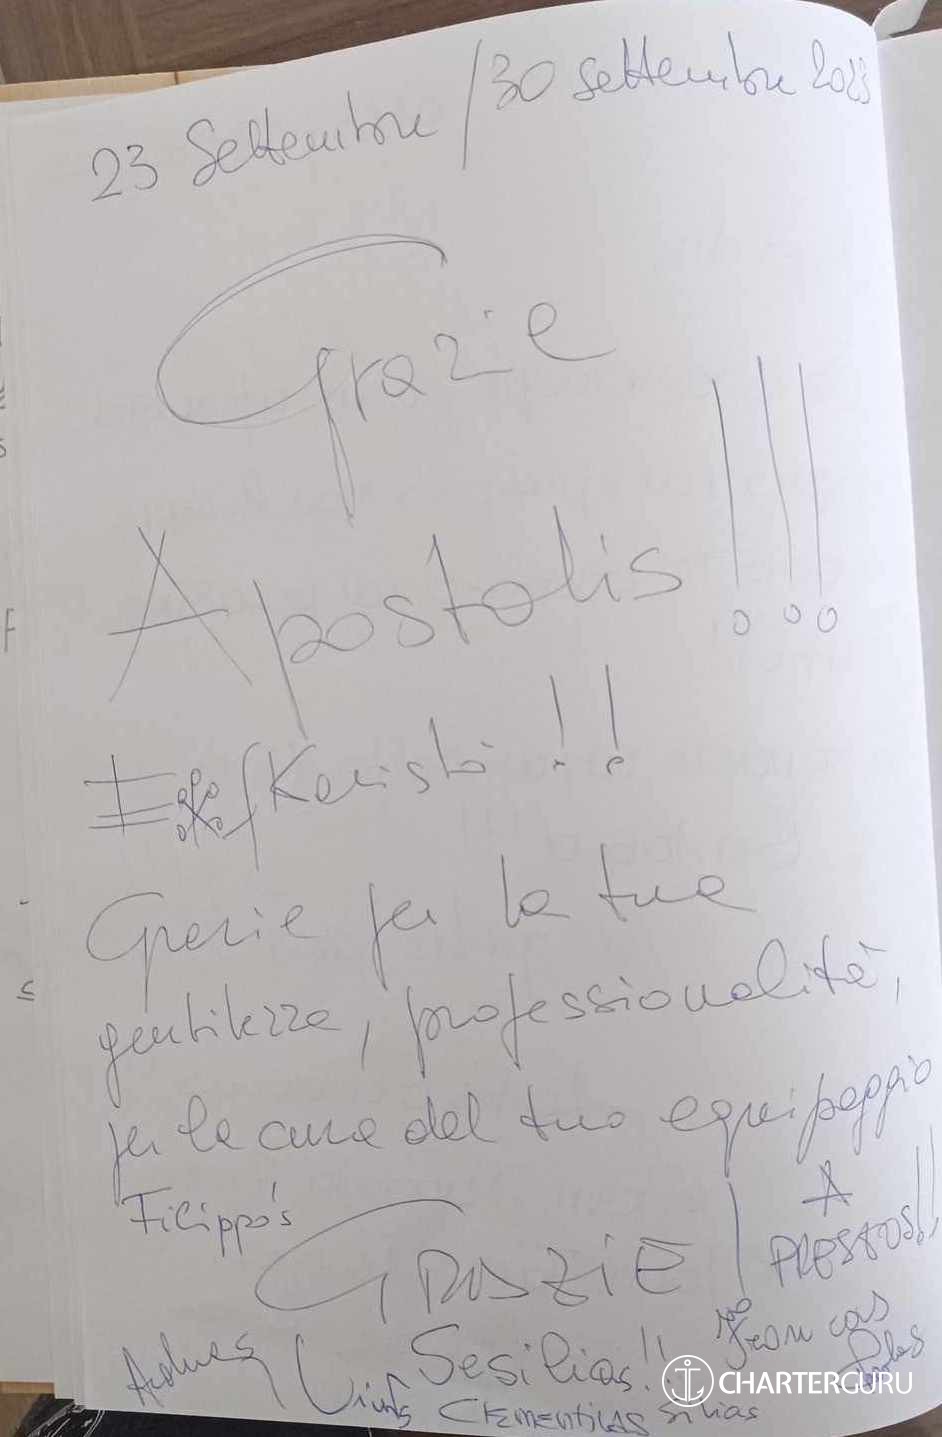 23 Settembre / 30 settembre 2023
Grazie
Apostolis!!!
Efkaristò!!
Grazie per la tua
gentilezza, professionalità,
per la cura del tuo equipaggio
Filippo's
GRAZIE!
A
PRESTOS!!
Sesilias!!
CLEMENTINAS Silvias
CHARTERGURU